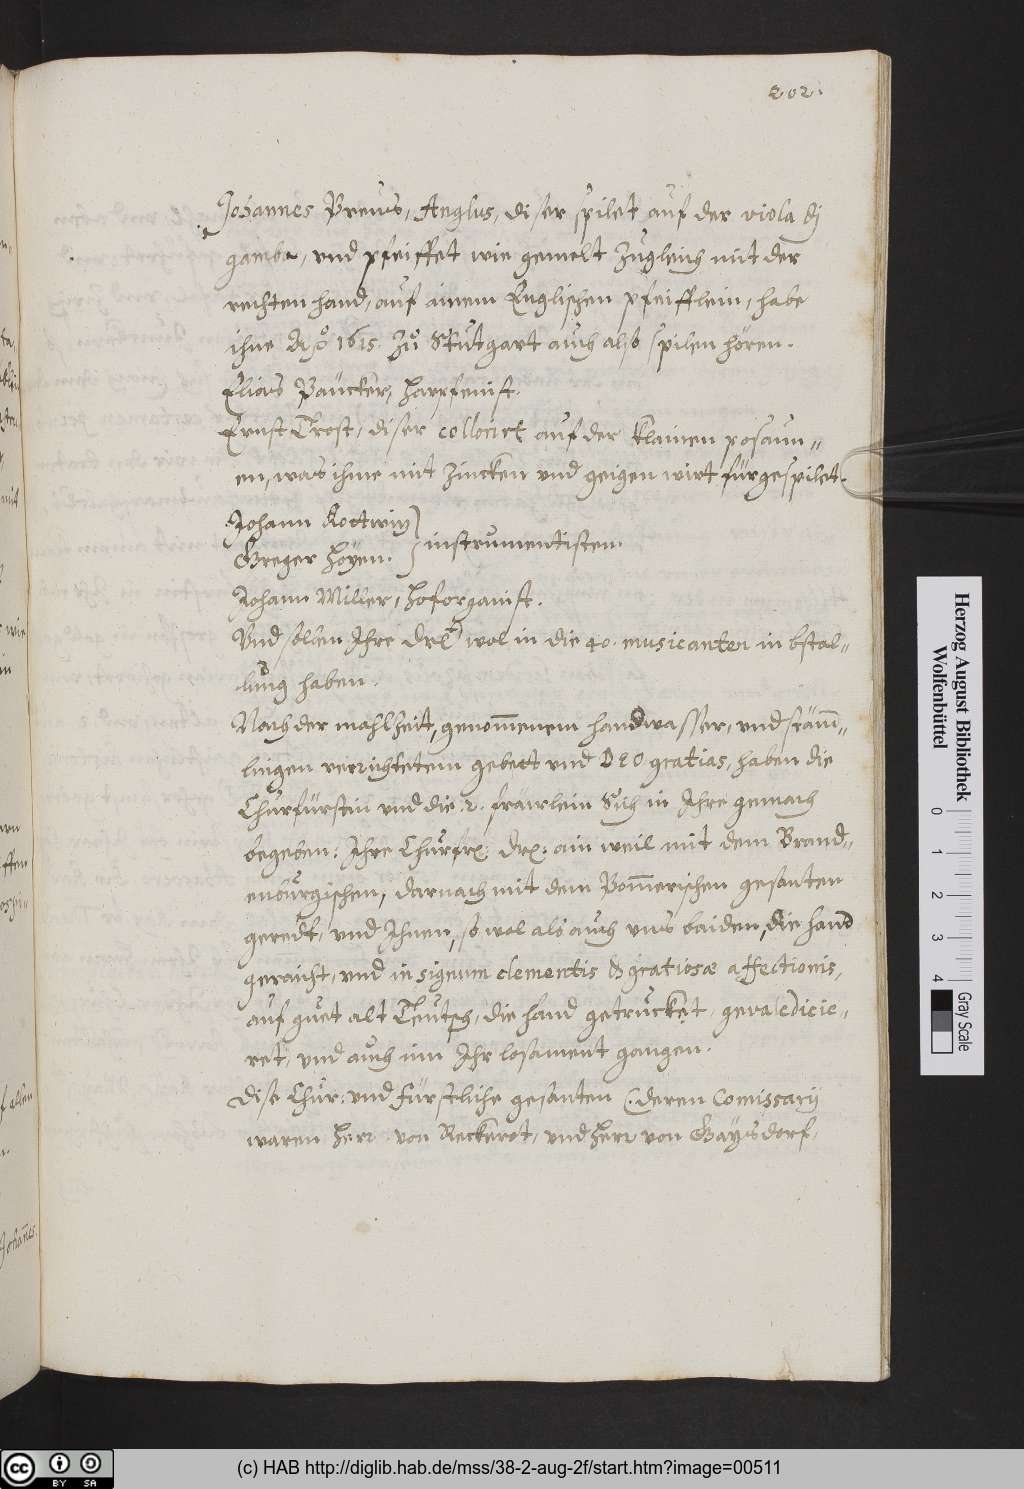 202.
Johannes Breüs, Anglus, diser spilet auf der viola di
gamba, vnd pfeiffet wie gemelt zugleich mit der
rechten hand, auf ainem Englischen pfeifflein, habe
ihne Aỏ 1615. zů Stutgart auch also spilen hören.
Elias Paücker, Harpfenist.
Ernst Trost, diser collorirt auf der klainen posaun„
en, was ihme mit Zincken vnd geigen wirt fürgespilet.
Johann Rottwin
Greger Höyen. } instrumentisten.
Johann Miller, Hoforganist.
Vnd sollen Ihre Drlt wol in die 40. musicanten in bstal„
lung haben.
Nach der mahlzeit, genom̄enem handwasser, vnd stäm̄„
lingen verrichtetem gebett vnd DEO gratias, haben die
Churfürstin vnd die 2. frawlein Sich in Ihre gemach
begeben: Ihre Churfr: Dr: ain weil mit dem Brand„
enburgischen, darnach mit dem Pom̄erischen gesanten
geredt, vnd Ihnen, so wol als auch vns baiden, die hand
geraicht, vnd in signum clementis & gratiosæ affectionis,
auf guet alt Teutsch, die hand getrucket, gevaledicie„
ret, vnd auch inn Ihr losament gangen.
Dise Chur: vnd Fürstliche gesanten (: deren Com̄issarij
waren Herr von Reckerot, vnd Herr von Gaÿsdorf,
Johan̄es
Herzog August Bibliothek
Wolfenbüttel
0 1 2 3 4
Gray Scale
CC BY SA
(c) HAB http://diglib.hab.de/mss/38-2-aug-2f/start.htm?image=00511